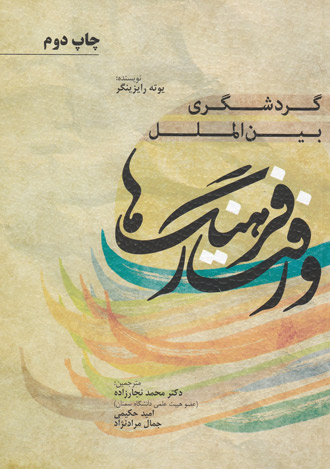 چاپ دوم
نویسنده:
یوته رایزینگر
گردشگری
بین‌الملل
و رفتار فرهنگ‌ها
مترجمین:
دکتر محمد نجارزاده
(عضو هیت علمی دانشگاه سمنان)
امید حکیمی
جمال مرادنژاد